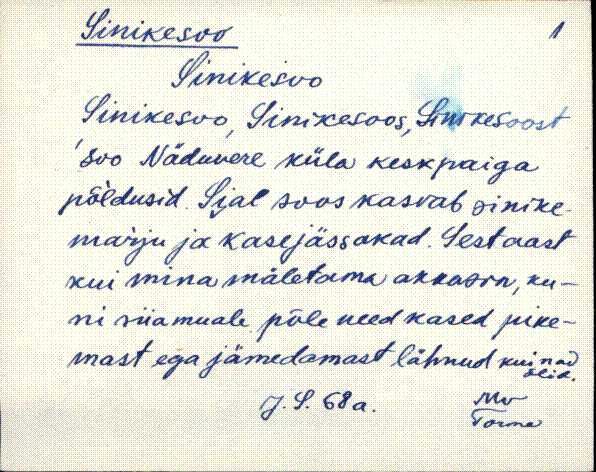 Sinikesoo 1
Sinikesoo
Sinikesoo, Sinikesoos, Sinikesoost
'soo Näduvere küla keskpaiga
põldusid. Sjal soos kasvab sinike-
marju ja kasejässakad. Sest aast
kui mina mäletama akkasin, ku-
ni siiamuale põle need kased pike-
mast ega jämedamast lähnud kui nad
olid.
J. S. 68 a. Mv
Torma